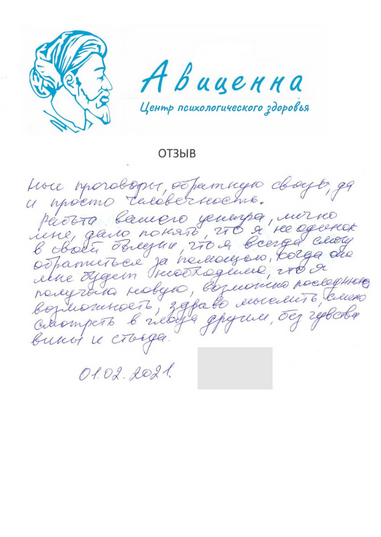 Авиценна
Центр психологического здоровья
ОТЗЫВ
ные проговоры, обратную связь, да
и просто человечность.
Работа вашего центра, лично
мне, дало понять, что я не одинок
в своей болезни, что я всегда смогу
обратиться за помощью, когда она
мне будет необходима, что я
получила новую, возможно последнюю
возможность, здраво мыслить, смело
смотреть в глаза другим, без чувства
вины и стыда.
01.02.2021.